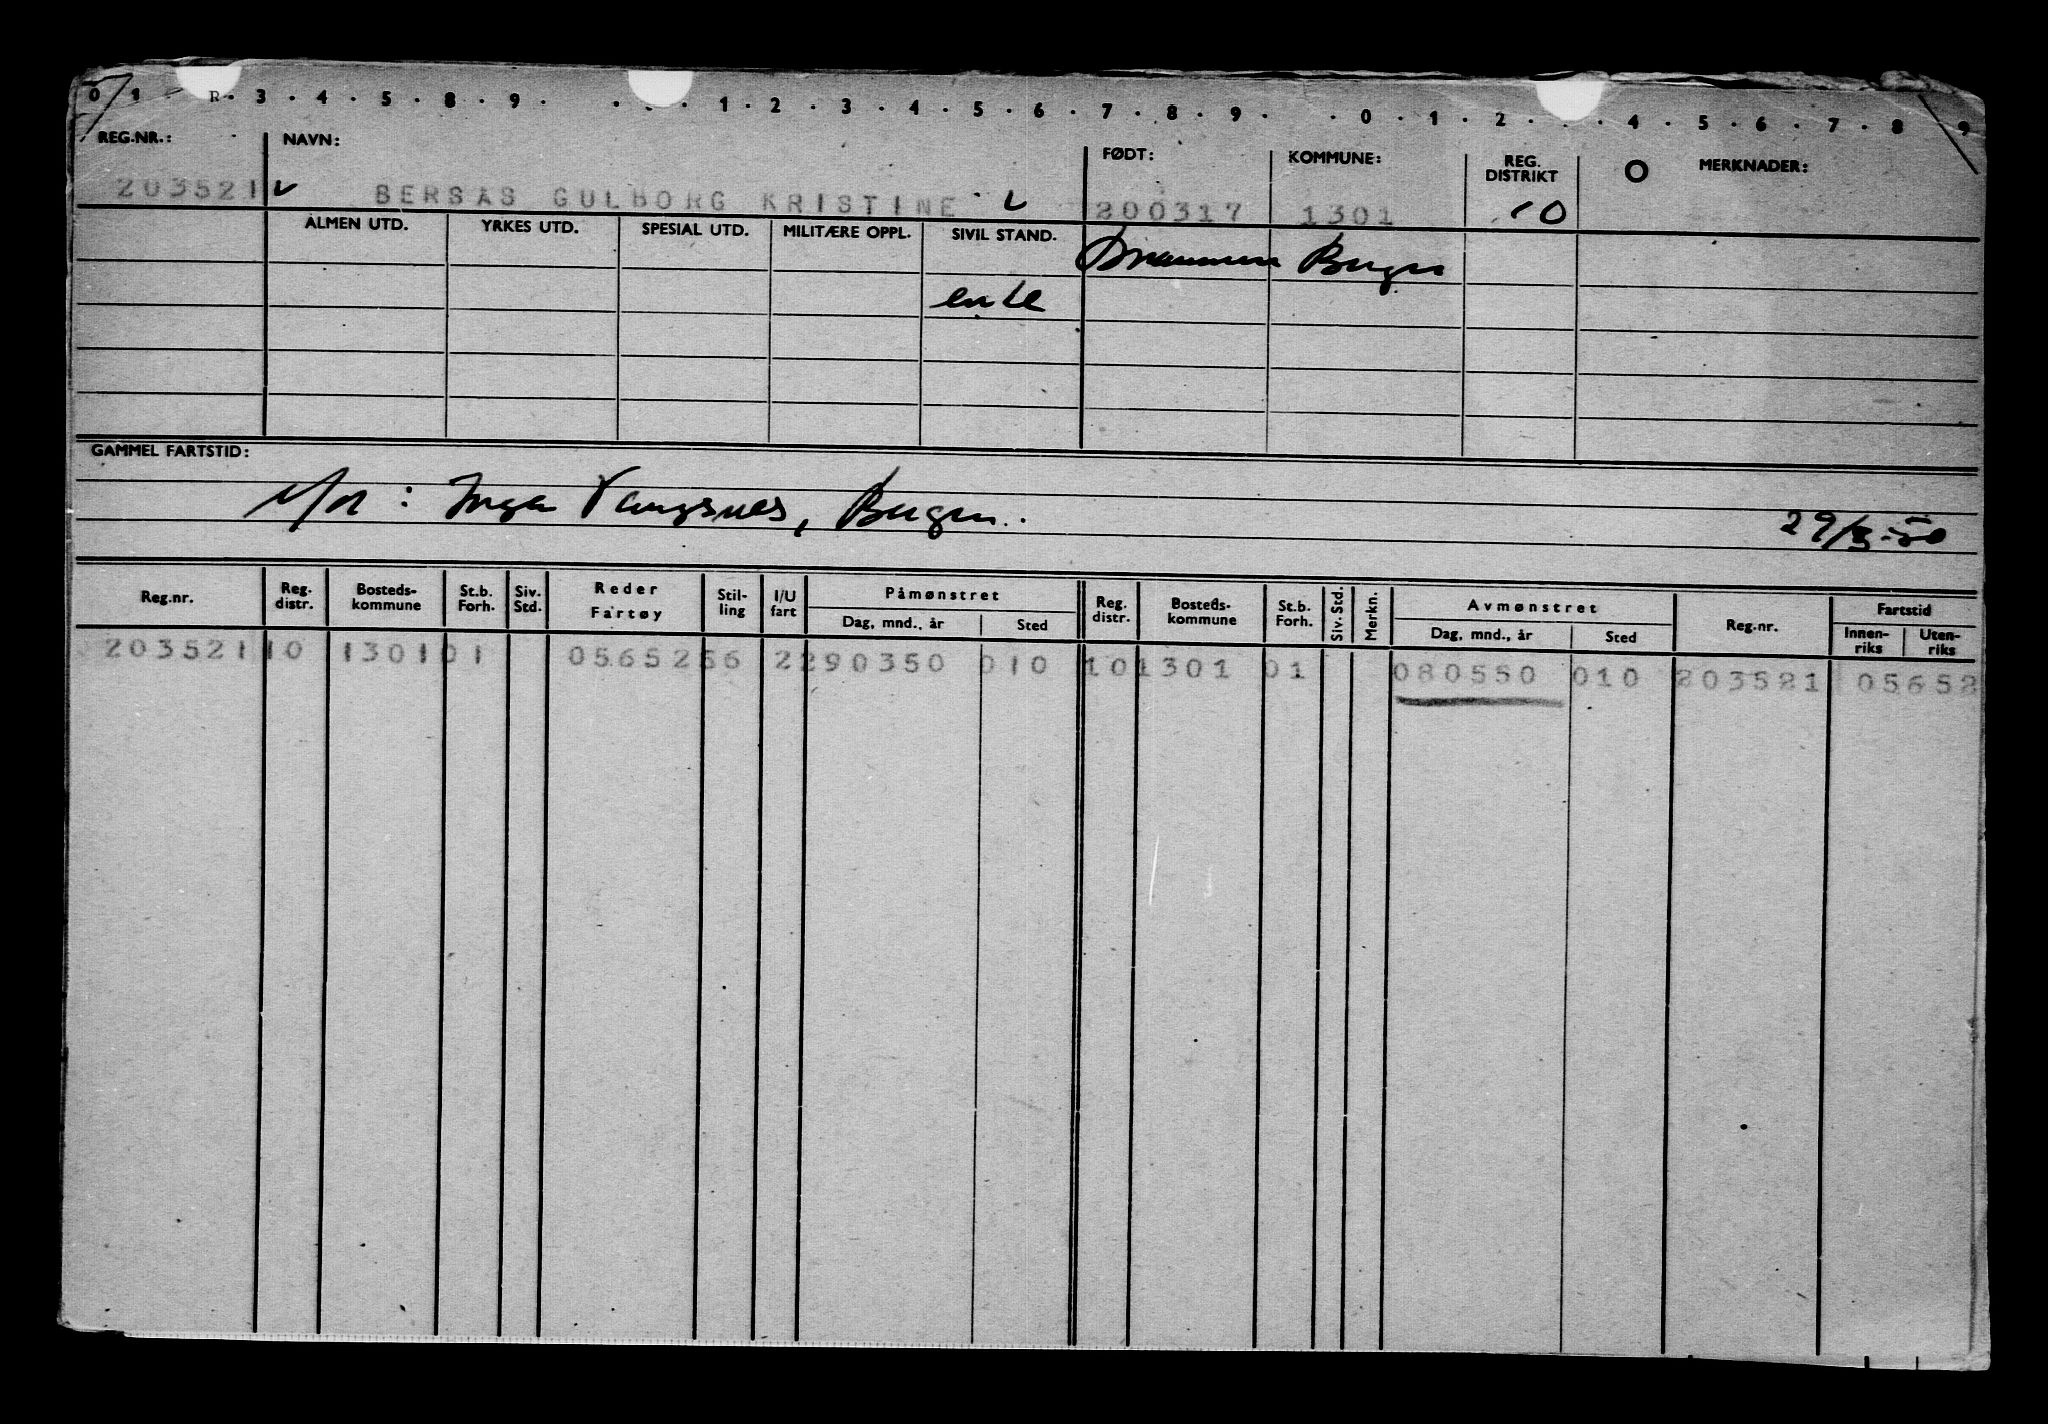 0 1 R. 3 . 4 . 5 . 8 . 9 . . . . 1 . 2 . 3 . 4 . 5 . 6 . 7 . 8 . 9 . . 0 . 1 . 2 . . . 4 . 5 . 6 . 7 . 8 . 9
REG.NR.: NAVN: FØDT: KOMMUNE: REG. DISTRIKT O MERKNADER:
203521 BERSÅS GULBORG KRISTINE 200317 1301 10
ALMEN UTD. YRKES UTD. SPESIAL UTD. MILITÆRE OPPL. SIVIL STAND. Drammen Bergen
enke
GAMMEL FARTSTID:
Inga Vangsnes, Bergen. 29/3-50
Reg.nr. Reg. distr. Bosteds- kommune St.b. Forh. Siv. Std. Reder Fartøy Stil- ling I/U fart Påmønstret Reg. distr. Bosteds- kommune St.b. Forh. Siv. Std. Merkn. Avmønstret Reg.nr. Fartstid
Dag, mnd., år Sted Dag, mnd., år Sted Innen- riks Uten- riks
203521 10 1301 01 05652 56 2 290350 010 10 1301 01 080550 010 203521 05652